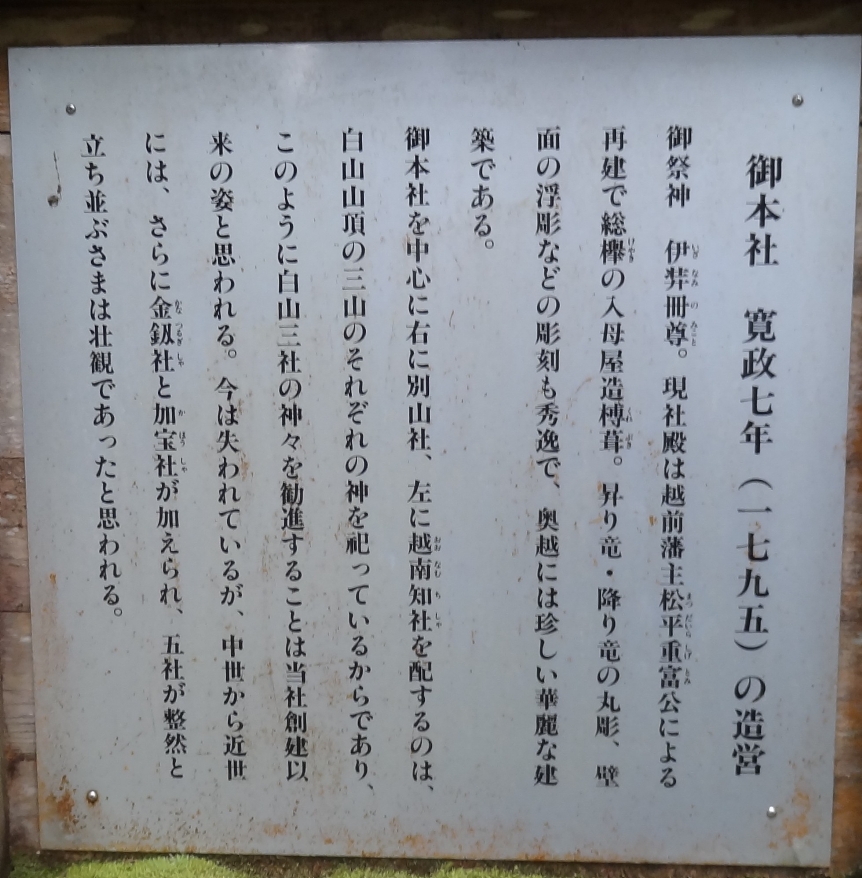 御本社　寛政七年（一七九五）の造営
御祭神　伊弉冊尊。現社殿は越前藩主松平重富公による
再建で総欅の入母屋造榑葺。昇り竜・降り竜の丸彫、壁
面の浮彫などの彫刻も秀逸で、奥越には珍しい華麗な建
築である。
御本社を中心に右に別山社、左に越南知社を配するのは、
白山山頂の三山のそれぞれの神を祀っているからであり、
このように白山三社の神々を勧進することは当社創建以
来の姿と思われる。今は失われているが、中世から近世
には、さらに金釼社と加宝社が加えられ、五社が整然と
立ち並ぶさまは壮観であったと思われる。